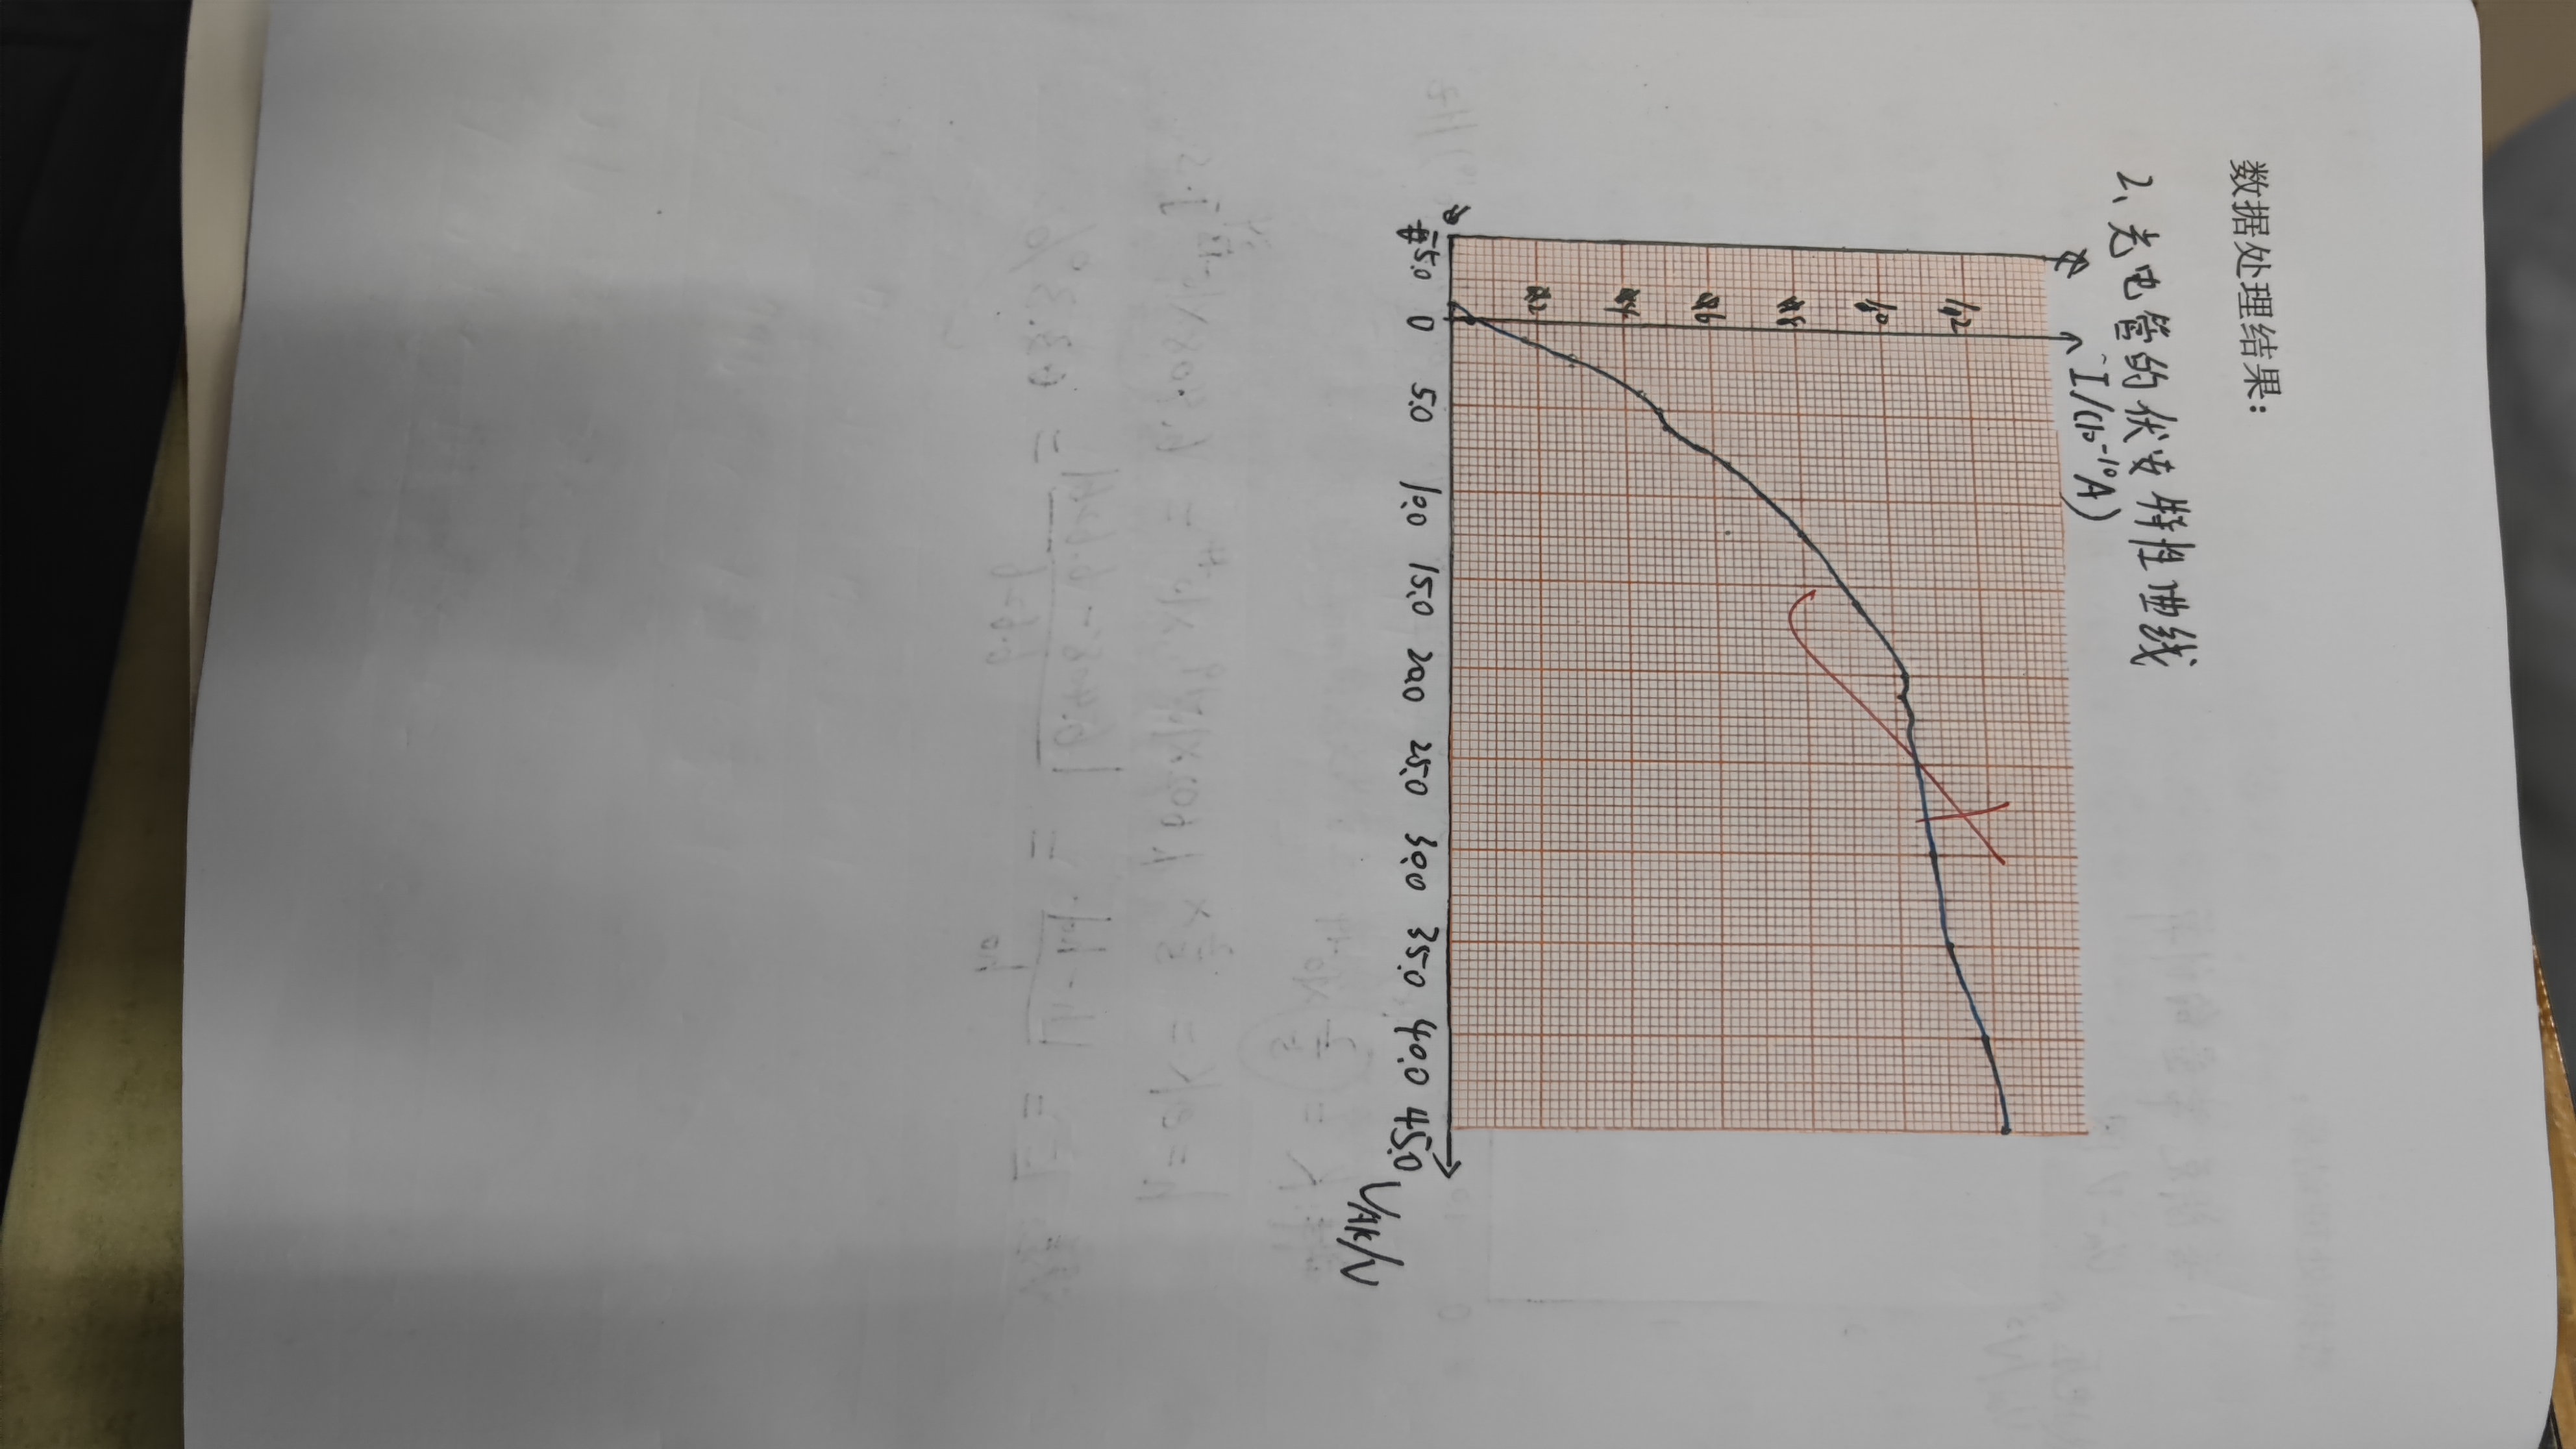 数据处理结果：
2、光电管的伏安特性曲线
I/(10⁻¹⁰A)
1.2
1.0
0.8
0.6
0.4
0.2
-5.0 0 5.0 10.0 15.0 20.0 25.0 30.0 35.0 40.0 45.0
V_AK/V